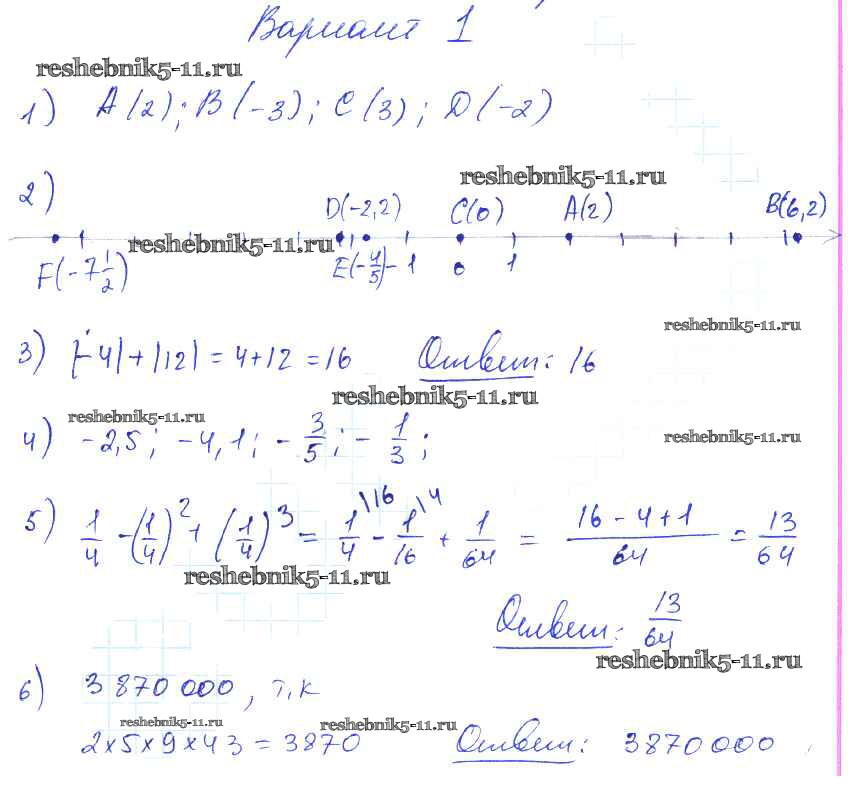 Вариант 1
reshebnik5-11.ru
1) A(2); B(-3); C(3); D(-2)
reshebnik5-11.ru
2) D(-2,2) C(0) A(2) B(6,2)
reshebnik5-11.ru
F(-7 1/2) E(-4/5) -1 0 1
reshebnik5-11.ru
3) |-4|+|12|=4+12=16 Ответ: 16
reshebnik5-11.ru
reshebnik5-11.ru
reshebnik5-11.ru
4) -2,5; -4,1; -3/5; -1/3;
5) 1/4 - (1/4)^2 + (1/4)^3 = 1/4\16 - 1/16\4 + 1/64 = (16-4+1)/64 = 13/64
reshebnik5-11.ru
Ответ: 13/64
reshebnik5-11.ru
6) 3 870 000, т,к
reshebnik5-11.ru
reshebnik5-11.ru
2×5×9×43=3870 Ответ: 3870000